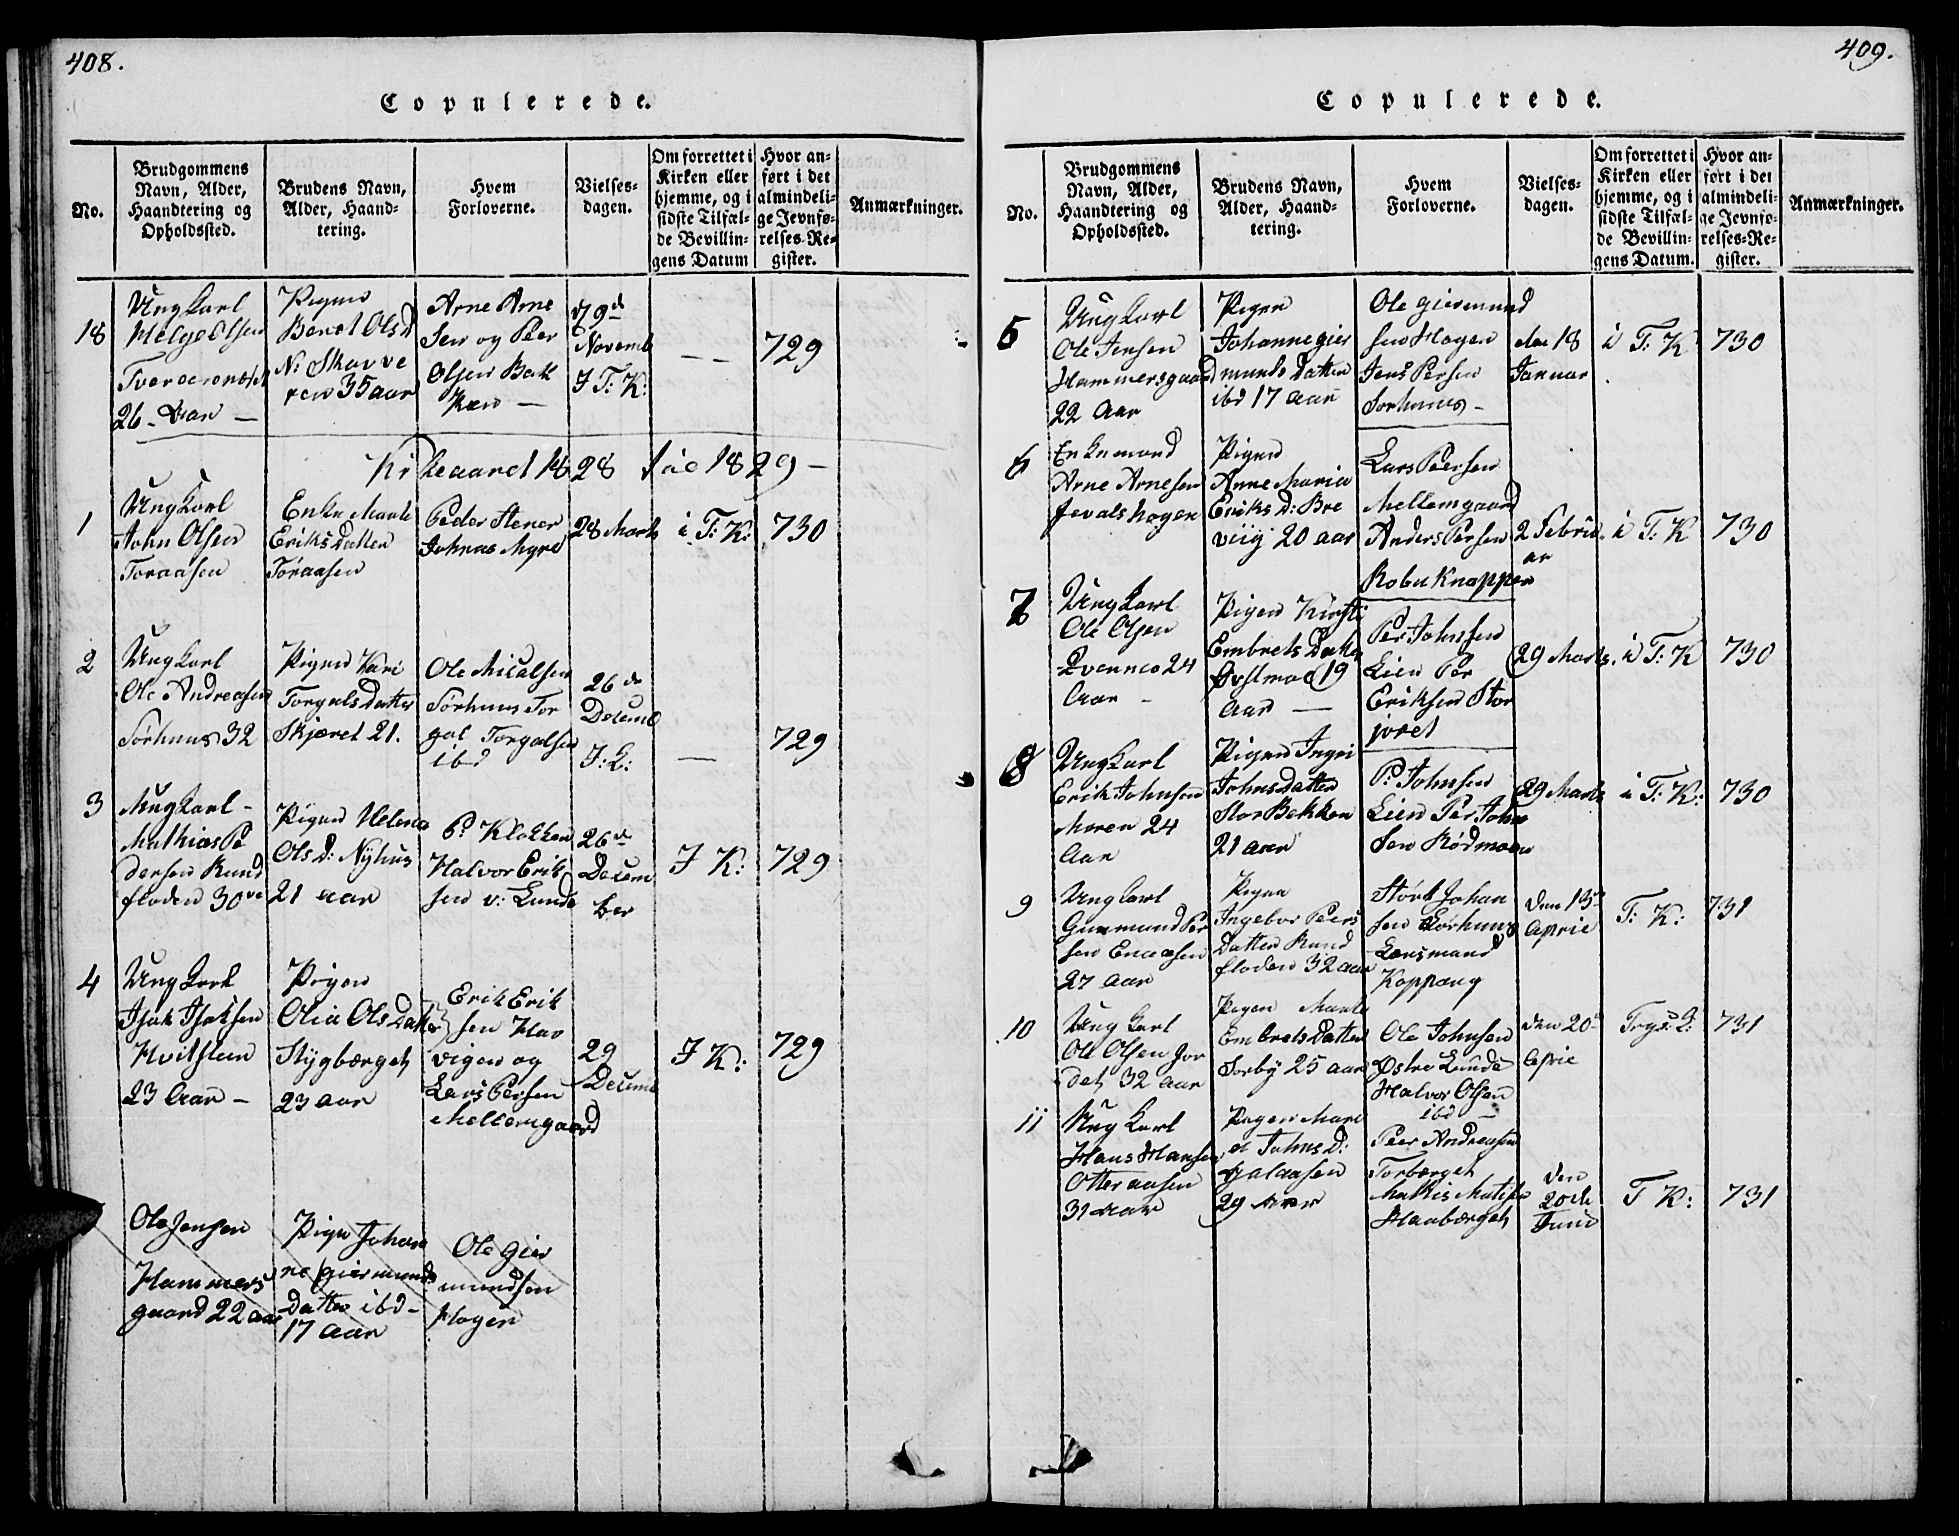 408.
Copulerede.
No.
Brudgommens
Navn, Alder,
Haandtering og
Opholdssted.
Brudens Navn,
Alder, Haand-
tering.
Hvem
Forloverne.
Vielses-
dagen.
Om forrettet i
Kirken eller
hjemme, og i
sidste Tilfæl-
de Bevillin-
gens Datum
Hvor an-
ført i det
almindeli-
ge Jevnfø-
relses-Re-
gister.
Anmærkninger.
18
Ungkarl
Helge Olsen
26 Aar —
Pigen
Beret Olsd
N: Skavve
ren 35 aar
Arne Arne
Sen og Peer
Olsen Bak
ken —
d 9d
Novemb
I T: K:
— —
729
Kirkeaaret 1828 til 1829 —
1
Ungkarl
John Olsen
Toraasen
Enke Marte
Eriks Datter
Toraasen
Peder Stener
Johnas Myre
28 Marts
i T: K:
730
2
Ungkarl
Ole Andreasen
Sörhuus 32
Pigen Kari
Torgals Datter
Skjæret 21.
Ole Micalsen
Sörhuus Tor
gal Torgalsen
ibd
26 de
Decemb
I: K:
—
729
3
Ungkarl -
Mathias Pe
dersen Rund
floden 30
Pigen Helene
Ols d: Nÿhuus
21 aar
P: Klokken
Halvor Erik
sen v: Lunde
26 de
Decem
ber
I K:
729
4
Ung Karl
Isak Isaksen
Hvitsteen
23 Aar —
Pigen
Olia Ols Datter
Stÿgberget
23 aar
Erik Erik
sen Hav
vigen og
Lars Persen
Mellemgaard
29
Decemb
I K:
729
Ole Jensen
Hammers
gaard 22 aar
Pigen Johan
ne giermunds
Datter ibd -
17 aar
Ole Gier
mundsen
Hagen
409.
Copulerede.
No.
Brudgommens
Navn, Alder,
Haandtering og
Opholdssted.
Brudens Navn,
Alder, Haand-
tering.
Hvem
Forloverne.
Vielses-
dagen.
Om forrettet i
Kirken eller
hjemme, og i
sidste Tilfæl-
de Bevillin-
gens Datum.
Hvor an-
ført i det
almindeli-
ge Jevnfø-
relses-Re-
gister.
Anmærkninger.
5
Ung Karl
Ole Jensen
Hammersgaard
22 Aar
Pigen
Johanne gier
munds Datter
ibd 17 aar
Ole giermund
sen Hagen
Jens Persen
Sorhuus -
den 18
Januar
i T: K
730
6
Enkemand
Arne Arnesen
Jevalshagen
Pigen
Anne Maria
Eriks D: Bre
viig 20 aar
Lars Peersen
Mellemgaard
Anders Persen
Robu Knappen
2 Februa
ar
i T: K
730
7
Ung Karl
Ole Olsen
24
Aar —
Pigen Kirsti
Embrets Datter
Østmoe 19
Aar —
Per Johnsen
Lien Per
Eriksen Stor
joret
29 Marts.
i T: K
730
8
Ung Karl
Erik Johnsen
Moren 24
Aar
Pigen Ingri
Johns Datter
Storbekken
21 aar
P: Johnsen
Lien Per John
Sen Rödmoen
29 Marts
i T: K:
730
9
Ung Karl
Gunmund Per
sen Eneaasen
27 aar
Pigen
Ingebor Peers
Datter Rund
floden 32 aar
Störk Johan
sen Sörhuus
Lensmand
Koppang
den 13
Aprie
T: K:
731
10
Ung Karl
Ole Olsen Jor
det 32 aar
Pigen Marte
Embrets Datter
Sorby 25 aar
Ole Johnsen
Østre Lunde
Halvor Olsen
ibd —
den 20
Aprie
Trys: K:
731
11
Ung Karl
Hans Hansen
Otteraasen
31 aar
Pigen Mare
et Johns D:
Galaasen
29 Aar
Peer Andreasen
Torberget
Mattis Mattise
Haaberget
den
20de
Juni
T K:
731